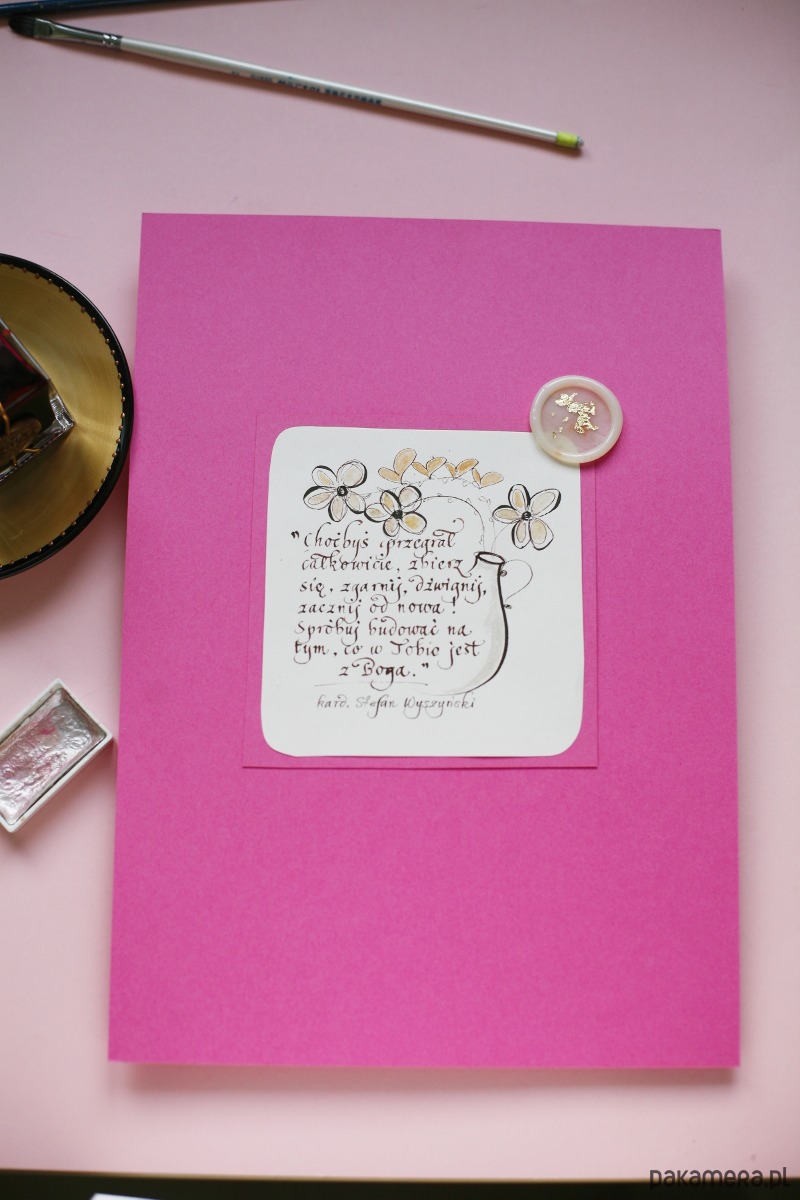 "Choćbyś przegrał
całkowicie, zbierz
się, zgarnij, dźwignij,
zacznij od nowa!
Spróbuj budować na
tym, co w Tobie jest
z Boga."
kard. Stefan Wyszyński
pakamera.pl